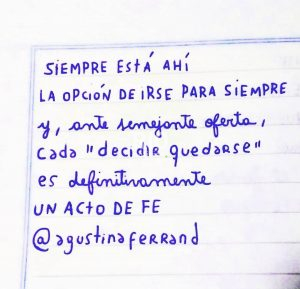 SIEMPRE ESTÁ AHÍ
LA OPCIÓN DE IRSE PARA SIEMPRE
y, ante semejante oferta,
cada "decidir quedarse"
es definitivamente
UN ACTO DE FE
@agustinaferrand